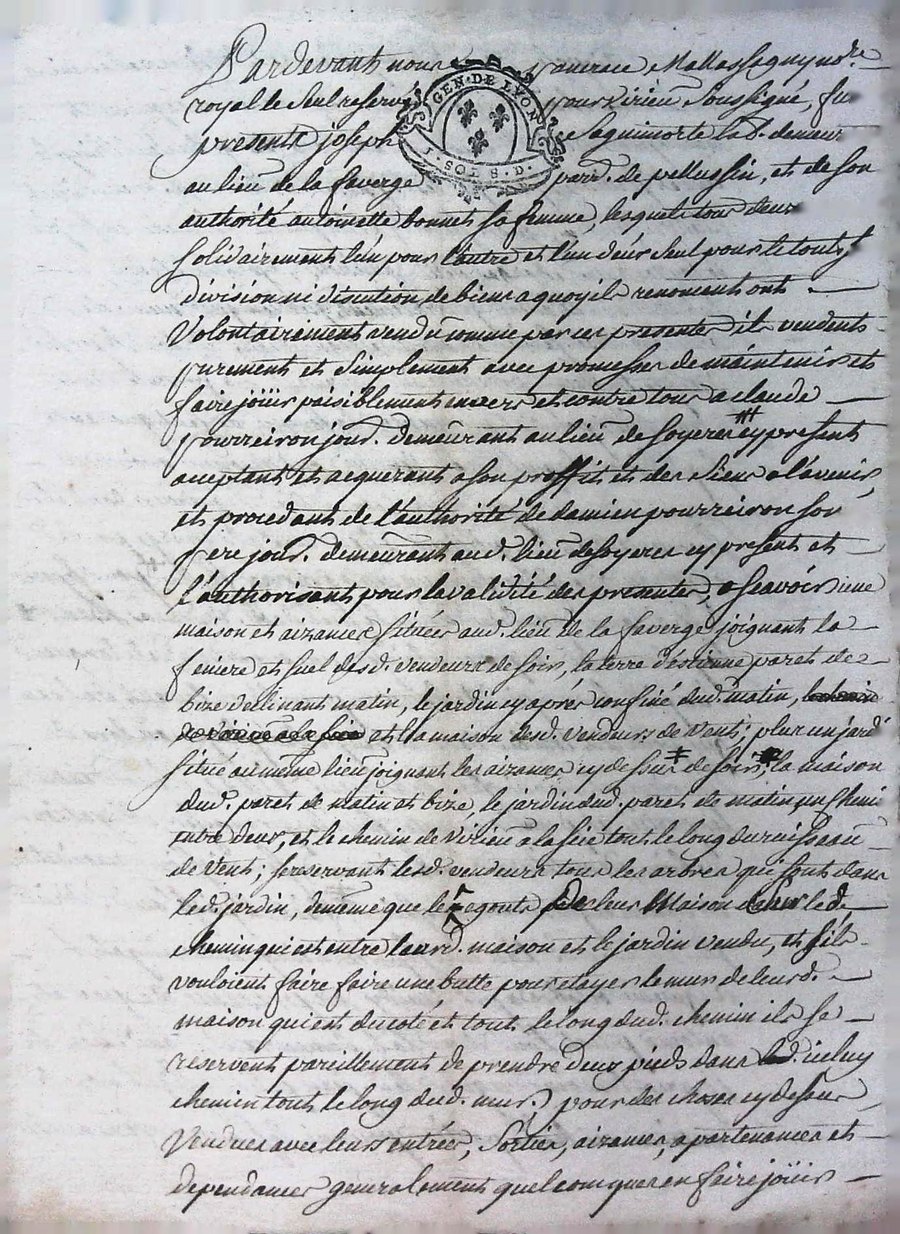 Pardevant nous pancrace Mallassagny no.re
royal le seul reservé pour virieu soussigné, fu
presents joseph seguimorte lab. demeur
GEN. DE LYON
1. SOL 8. D.
au lieu de la faverge parr. de pellussin, et de son
authorité antoinette bonnet sa femme, lesquels tous deux
solidairement l'un pour l'autre et l'un d'eux seul pour le tout s
division ni discution de biens a quoy ils renoncent ont
volontairement vendu comme par ces presentes ils vendent
purement et simplement avec promesses de maintenir et
faire joüir paisiblement envers et contre tous a claude
pourreiron jour. demeurant au lieu de soyeres cy present
aceptant et aequerant a son proffit et des siens a l'avenir
et procedant de l'authorité de damien pourreiron son
pere jour. demeurant aud. lieu de soyeres cy present et
l'authorisant pour la validité des presentes, a sçavoir une
maison et aizances situées aud. lieu de la faverge joignant la
feniere et suel desd. vendeurs de soir, la terre d'estienne paret de
bize declinant matin, le jardin cy après confiné dud. matin, le chemin
de virieu a la scie et la maison desd. vendeurs de vent; plus un jardi
situé au même lieu joignant les aizances cy dessus de soir, la maison
dud. paret de matin et bize, le jardin dud. paret de matin, un chemi
entre deux, et le chemin de virieu a la scie tout le long du ruisseau
de vent; se reservant lesd. vendeurs tous les arbres qui sont dans
led. jardin, de même que les egouts de leur maison sur le d.
chemin qui est entre leurd. maison et le jardin vendu, et s'ils
vouloient faire faire une butte pour etayer le mur de leurd.
maison qui est du coté et tout le long dud. chemin ils se
reservent pareillement de prendre deux pieds dans led. icelluy
chemin tout le long dud. mur) pour des choses cy dessus
vendues avec leurs entrées, sorties, aizances, apartenances et
dependances generalement quelconques en faire joüir